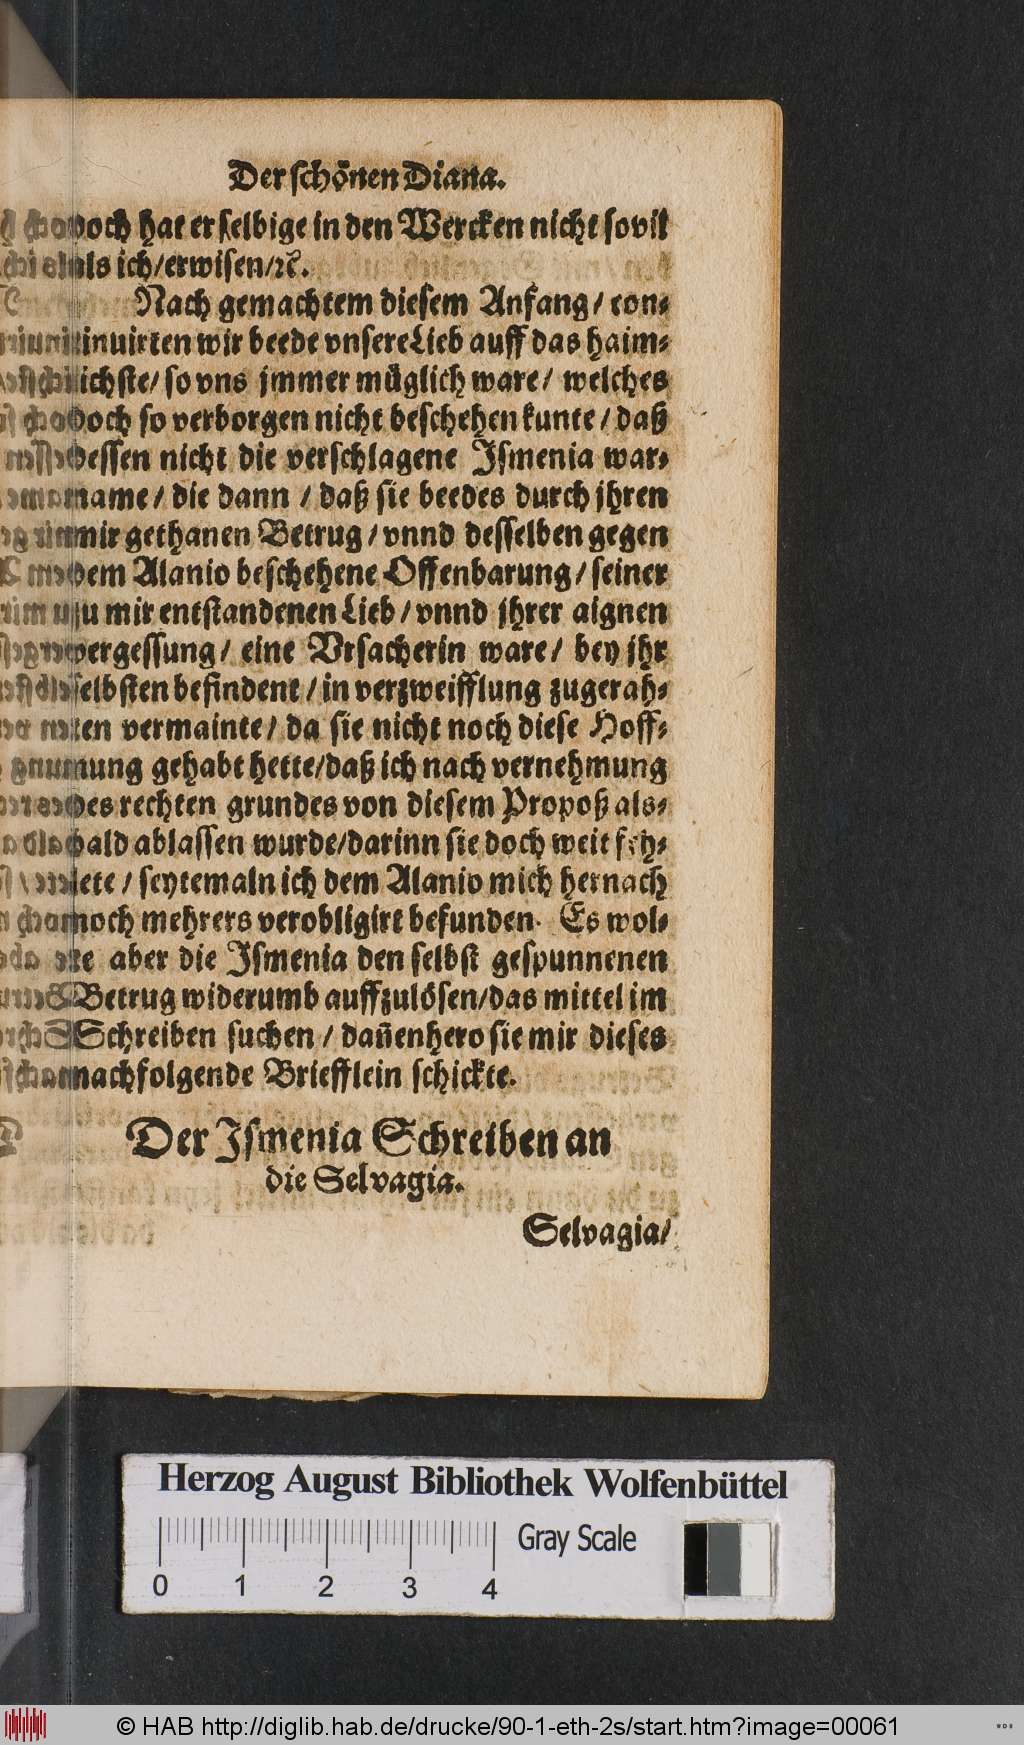 Der schönen Diana.
doch hat er selbige in den Wercken nicht sovil
als ich/erwisen/ꝛc.
Nach gemachtem diesem Anfang/ con-
tinuirten wir beede vnsere Lieb auff das haim-
lichste/ so vns jmmer müglich ware/ welches
doch so verborgen nicht beschehen kunte/ daß
dessen nicht die verschlagene Ismenia war-
name/ die dann / daß sie beedes durch jhren
mir gethanen Betrug/ vnnd desselben gegen
dem Alanio beschehene Offenbarung/ seiner
zu mir entstandenen Lieb/ vnnd jhrer aignen
vergessung/ eine Vrsacherin ware/ bey jhr
selbsten befindent/ in verzweifflung zugerah-
ten vermainte/ da sie nicht noch diese Hoff-
nung gehabt hette/daß ich nach vernehmung
des rechten grundes von diesem Propoß als-
bald ablassen wurde/darinn sie doch weit feh-
lete/ seytemaln ich dem Alanio mich hernach
noch mehrers verobligirt befunden. Es wol-
te aber die Ismenia den selbst gespunnenen
Betrug widerumb auffzulösen/das mittel im
Schreiben suchen/ dañenhero sie mir dieses
nachfolgende Briefflein schickte.
Der Ismenia Schreiben an
die Selvagia.
Selvagia/
Herzog August Bibliothek Wolfenbüttel
Gray Scale
0 1 2 3 4
© HAB http://diglib.hab.de/drucke/90-1-eth-2s/start.htm?image=00061